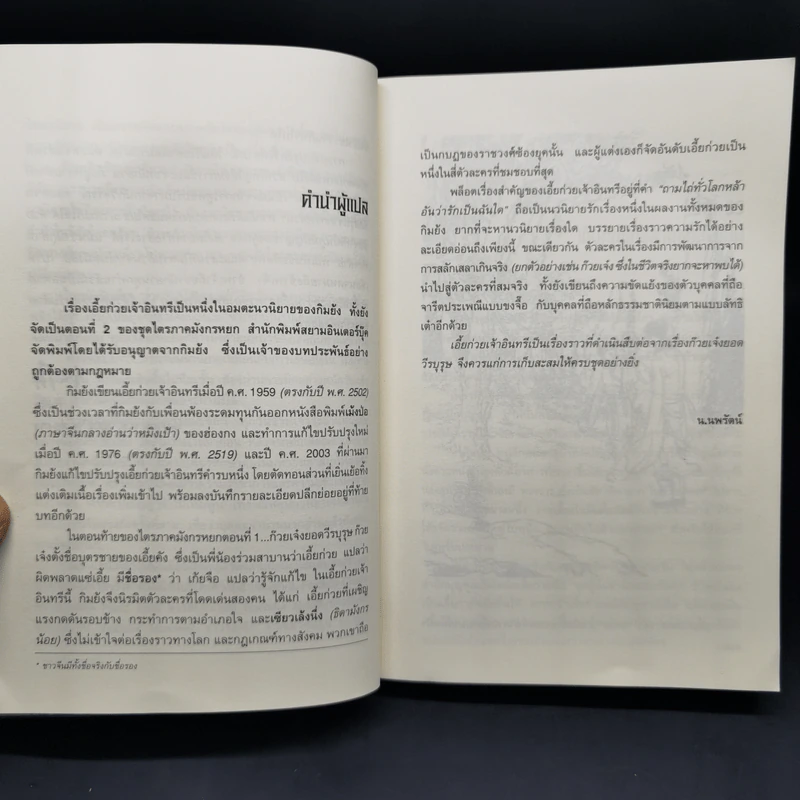 คำนำผู้แปล
เรื่องเอี้ยก่วยเจ้าอินทรีเป็นหนึ่งในอมตะนวนิยายของกิมย้ง ทั้งยัง
จัดเป็นตอนที่ 2 ของชุดไตรภาคมังกรหยก สำนักพิมพ์สยามอินเตอร์บุ๊ค
จัดพิมพ์โดยได้รับอนุญาตจากกิมย้ง ซึ่งเป็นเจ้าของบทประพันธ์อย่าง
ถูกต้องตามกฎหมาย
กิมย้งเขียนเอี้ยก่วยเจ้าอินทรีเมื่อปี ค.ศ. 1959 (ตรงกับปี พ.ศ. 2502)
ซึ่งเป็นช่วงเวลาที่กิมย้งกับเพื่อนพ้องระดมทุนกันออกหนังสือพิมพ์เม้งป่อ
(ภาษาจีนกลางอ่านว่าหมิงเป้า) ของฮ่องกง และทำการแก้ไขปรับปรุงใหม่
เมื่อปี ค.ศ. 1976 (ตรงกับปี พ.ศ. 2519) และปี ค.ศ. 2003 ที่ผ่านมา
กิมย้งแก้ไขปรับปรุงเอี้ยก่วยเจ้าอินทรีคำรบหนึ่ง โดยตัดทอนส่วนที่เยิ่นเย้อทิ้ง
แต่งเติมเนื้อเรื่องเพิ่มเข้าไป พร้อมลงบันทึกรายละเอียดปลีกย่อยอยู่ที่ท้าย
บทอีกด้วย
ในตอนท้ายของไตรภาคมังกรหยกตอนที่ 1...ก๊วยเจ๋งยอดวีรบุรุษ ก๊วย
เจ๋งตั้งชื่อบุตรชายของเอี้ยคัง ซึ่งเป็นพี่น้องร่วมสาบานว่าเอี้ยก่วย แปลว่า
ผิดพลาดแซ่เอี้ย มีชื่อรอง* ว่า เก้ยจือ แปลว่ารู้จักแก้ไข ในเอี้ยก่วยเจ้า
อินทรีนี้ กิมย้งจึงนิรมิตตัวละครที่โดดเด่นสองคน ได้แก่ เอี้ยก่วยที่เผชิญ
แรงกดดันรอบข้าง กระทำการตามอำเภอใจ และเซียวเล้งนึ่ง (ธิดามังกร
น้อย) ซึ่งไม่เข้าใจต่อเรื่องราวทางโลก และกฎเกณฑ์ทางสังคม พวกเขาถือ
* ชาวจีนมีทั้งชื่อจริงกับชื่อรอง
เป็นกบฎของราชวงศ์ซ้องยุคนั้น และผู้แต่งเองก็จัดอันดับเอี้ยก่วยเป็น
หนึ่งในสี่ตัวละครที่ชมชอบที่สุด
พล็อตเรื่องสำคัญของเอี้ยก่วยเจ้าอินทรีอยู่ที่คำ "ถามไถ่ทั่วโลกหล้า
อันว่ารักเป็นฉันใด" ถือเป็นนวนิยายรักเรื่องหนึ่งในผลงานทั้งหมดของ
กิมย้ง ยากที่จะหานวนิยายเรื่องใด บรรยายเรื่องราวความรักได้อย่าง
ละเอียดอ่อนถึงเพียงนี้ ขณะเดียวกัน ตัวละครในเรื่องมีการพัฒนาการจาก
การสลักเสลาเกินจริง (ยกตัวอย่างเช่น ก๊วยเจ๋ง ซึ่งในชีวิตจริงยากจะหาพบได้)
นำไปสู่ตัวละครที่สมจริง ทั้งยังเขียนถึงความขัดแย้งของตัวบุคคลที่ถือ
จารีตประเพณีแบบขงจื๊อ กับบุคคลที่ถือหลักธรรมชาตินิยมตามแบบลัทธิ
เต๋าอีกด้วย
เอี้ยก่วยเจ้าอินทรีเป็นเรื่องราวที่ดำเนินสืบต่อจากเรื่องก๊วยเจ๋งยอด
วีรบุรุษ จึงควรแก่การเก็บสะสมให้ครบชุดอย่างยิ่ง
น.นพรัตน์